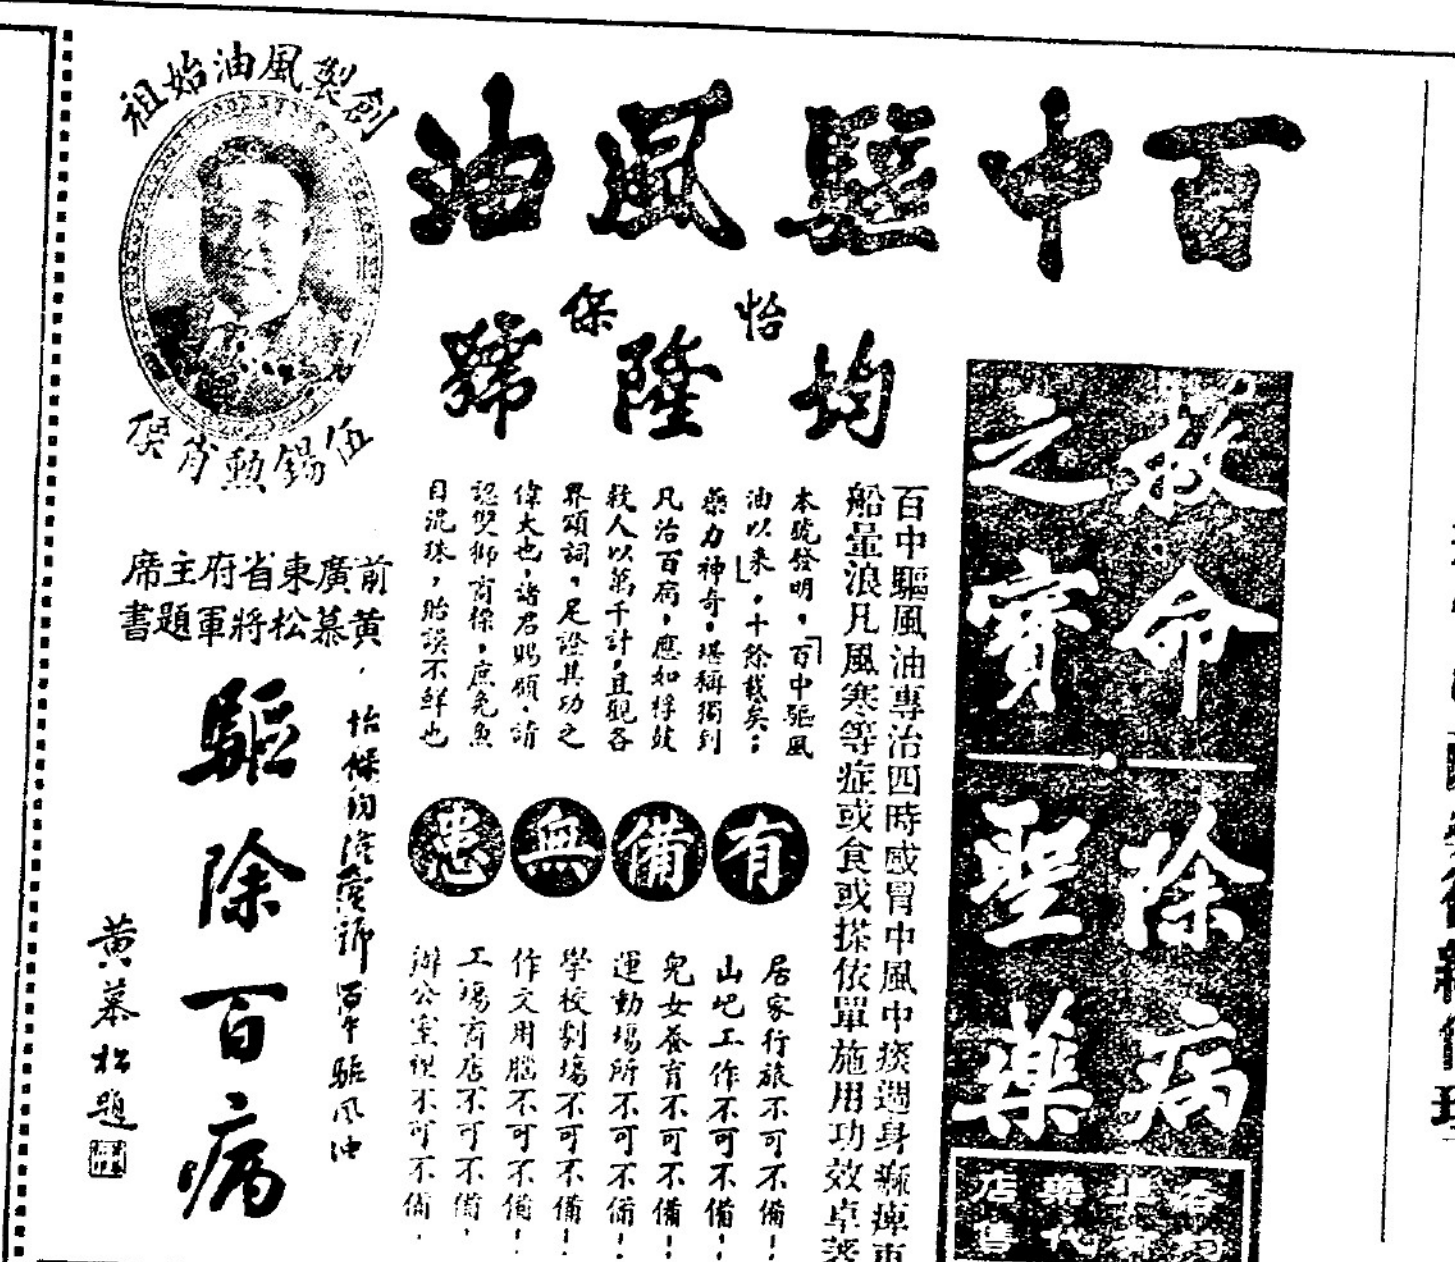 百中驅風油
怡保
均隆號
救命
之寶
除病
聖藥
店售
百中驅風油專治四時感冒中風中痰週身痲痺車
船暈浪凡風寒等症或食或搽依單施用功效卓著
本號發明，「百中驅風
油以來」，十餘載矣；
藥力神奇，堪稱獨到
凡治百病，應如桴鼓
救人以萬千計，且觀各
界頌詞，足證其功之
偉大也，諸君賜顧，請
認雙獅商標，庶免魚
目混珠，貽誤不鮮也
有備無患
居家行旅不可不備！
山地工作不可不備！
兒女養育不可不備！
運動場所不可不備！
學校劇場不可不備！
作文用腦不可不備！
工場商店不可不備，
辦公室裡不可不備．
創製風油始祖
伍錫勲肖像
前廣東省府主席
黃慕松將軍題書
怡保均隆寶號百中驅風油
驅除百病
黃慕松題